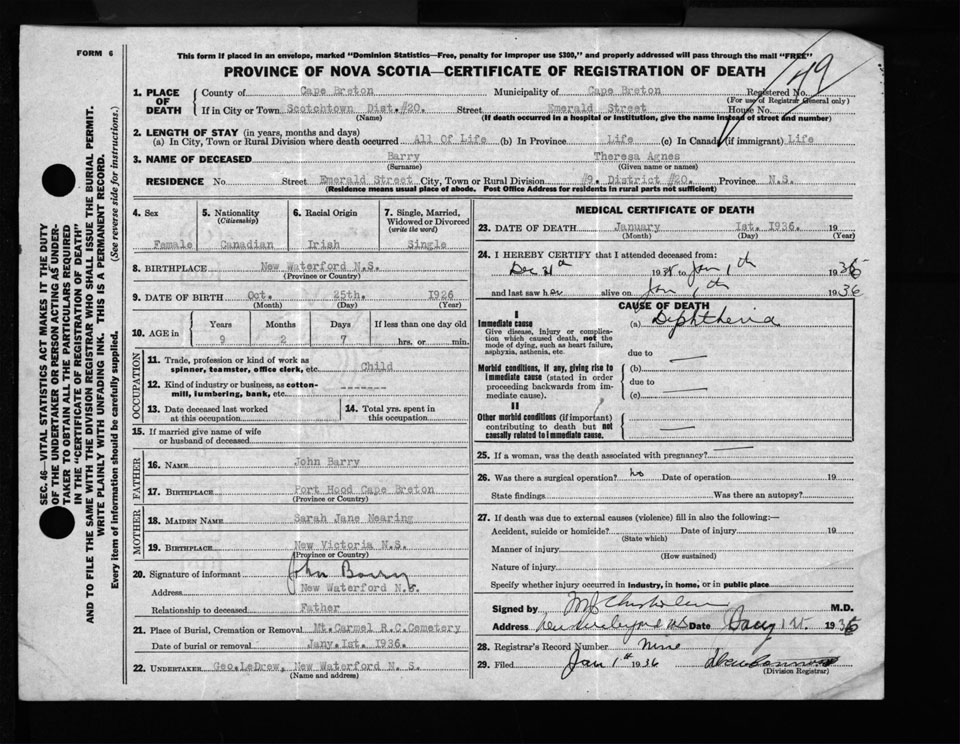 FORM 6
This form if placed in an envelope, marked "Dominion Statistics—Free, penalty for improper use $300," and properly addressed will pass through the mail "FREE"
PROVINCE OF NOVA SCOTIA—CERTIFICATE OF REGISTRATION OF DEATH
49
1. PLACE OF DEATH County of Cape Breton Municipality of Cape Breton Registered No.
(For use of Registrar General only)
If in City or Town Scotchtown Dist.#20. Street Emerald Street House No.
(Name) (If death occurred in a hospital or institution, give the name instead of street and number)
2. LENGTH OF STAY (in years, months and days)
(a) In City, Town or Rural Division where death occurred All Of Life (b) In Province Life (c) In Canada (if immigrant) Life
3. NAME OF DECEASED Barry Theresa Agnes
(Surname) (Given name or names)
RESIDENCE No Street Emerald Street City, Town or Rural Division #9. District #20. Province N.S.
(Residence means usual place of abode. Post Office Address for residents in rural parts not sufficient)
4. Sex Female
5. Nationality (Citizenship) Canadian
6. Racial Origin Irish
7. Single, Married, Widowed or Divorced (write the word) Single
8. BIRTHPLACE New Waterford N.S.
(Province or Country)
9. DATE OF BIRTH Oct. 25th. 1926
(Month) (Day) (Year)
10. AGE in Years Months Days If less than one day old
9 2 7 hrs. or min.
OCCUPATION
11. Trade, profession or kind of work as spinner, teamster, office clerk, etc. Child
12. Kind of industry or business, as cotton-mill, lumbering, bank, etc. -------
13. Date deceased last worked at this occupation
14. Total yrs. spent in this occupation
15. If married give name of wife or husband of deceased
FATHER
16. NAME John Barry
17. BIRTHPLACE Port Hood Cape Breton
(Province or Country)
MOTHER
18. MAIDEN NAME Sarah Jane Nearing
19. BIRTHPLACE New Victoria N.S.
(Province or Country)
20. Signature of informant John Barry
Address New Waterford N.S.
Relationship to deceased Father
21. Place of Burial, Cremation or Removal Mt.Carmel R.C.Cemetery
Date of burial or removal Jany.1st. 1936.
22. UNDERTAKER Geo.LeDrew, New Waterford N. S.
(Name and address)
MEDICAL CERTIFICATE OF DEATH
23. DATE OF DEATH January 1st. 1936. 19
(Month) (Day) (Year)
24. I HEREBY CERTIFY that I attended deceased from:
Dec 31th 19 to Jan 1th 1936
and last saw her alive on Jan 1th 1936
CAUSE OF DEATH
I
Immediate cause (a) Diphtheria
Give disease, injury or complication which caused death, not the mode of dying, such as heart failure, asphyxia, asthenia, etc.
due to —
Morbid conditions, if any, giving rise to immediate cause (stated in order proceeding backwards from immediate cause).
(b)
due to —
(c)
II
Other morbid conditions (if important) contributing to death but not causally related to immediate cause.
—
25. If a woman, was the death associated with pregnancy? —
26. Was there a surgical operation? no Date of operation 19
State findings Was there an autopsy?
27. If death was due to external causes (violence) fill in also the following:—
Accident, suicide or homicide? Date of injury 19
(State which)
Manner of injury
(How sustained)
Nature of injury
Specify whether injury occurred in Industry, in home, or in public place
Signed by Chisholm M.D.
Address New Waterford NS Date Jany 1st. 1936
28. Registrar's Record Number Nine
29. Filed Jan 1st 1936
(Division Registrar)
SEC. 46—VITAL STATISTICS ACT MAKES IT THE DUTY
OF THE UNDERTAKER OR PERSON ACTING AS UNDER-
TAKER TO OBTAIN ALL THE PARTICULARS REQUIRED
IN THE "CERTIFICATE OF REGISTRATION OF DEATH"
AND TO FILE THE SAME WITH THE DIVISION REGISTRAR WHO SHALL ISSUE THE BURIAL PERMIT.
WRITE PLAINLY WITH UNFADING INK. THIS IS A PERMANENT RECORD.
Every item of information should be carefully supplied. (See reverse side for instructions.)